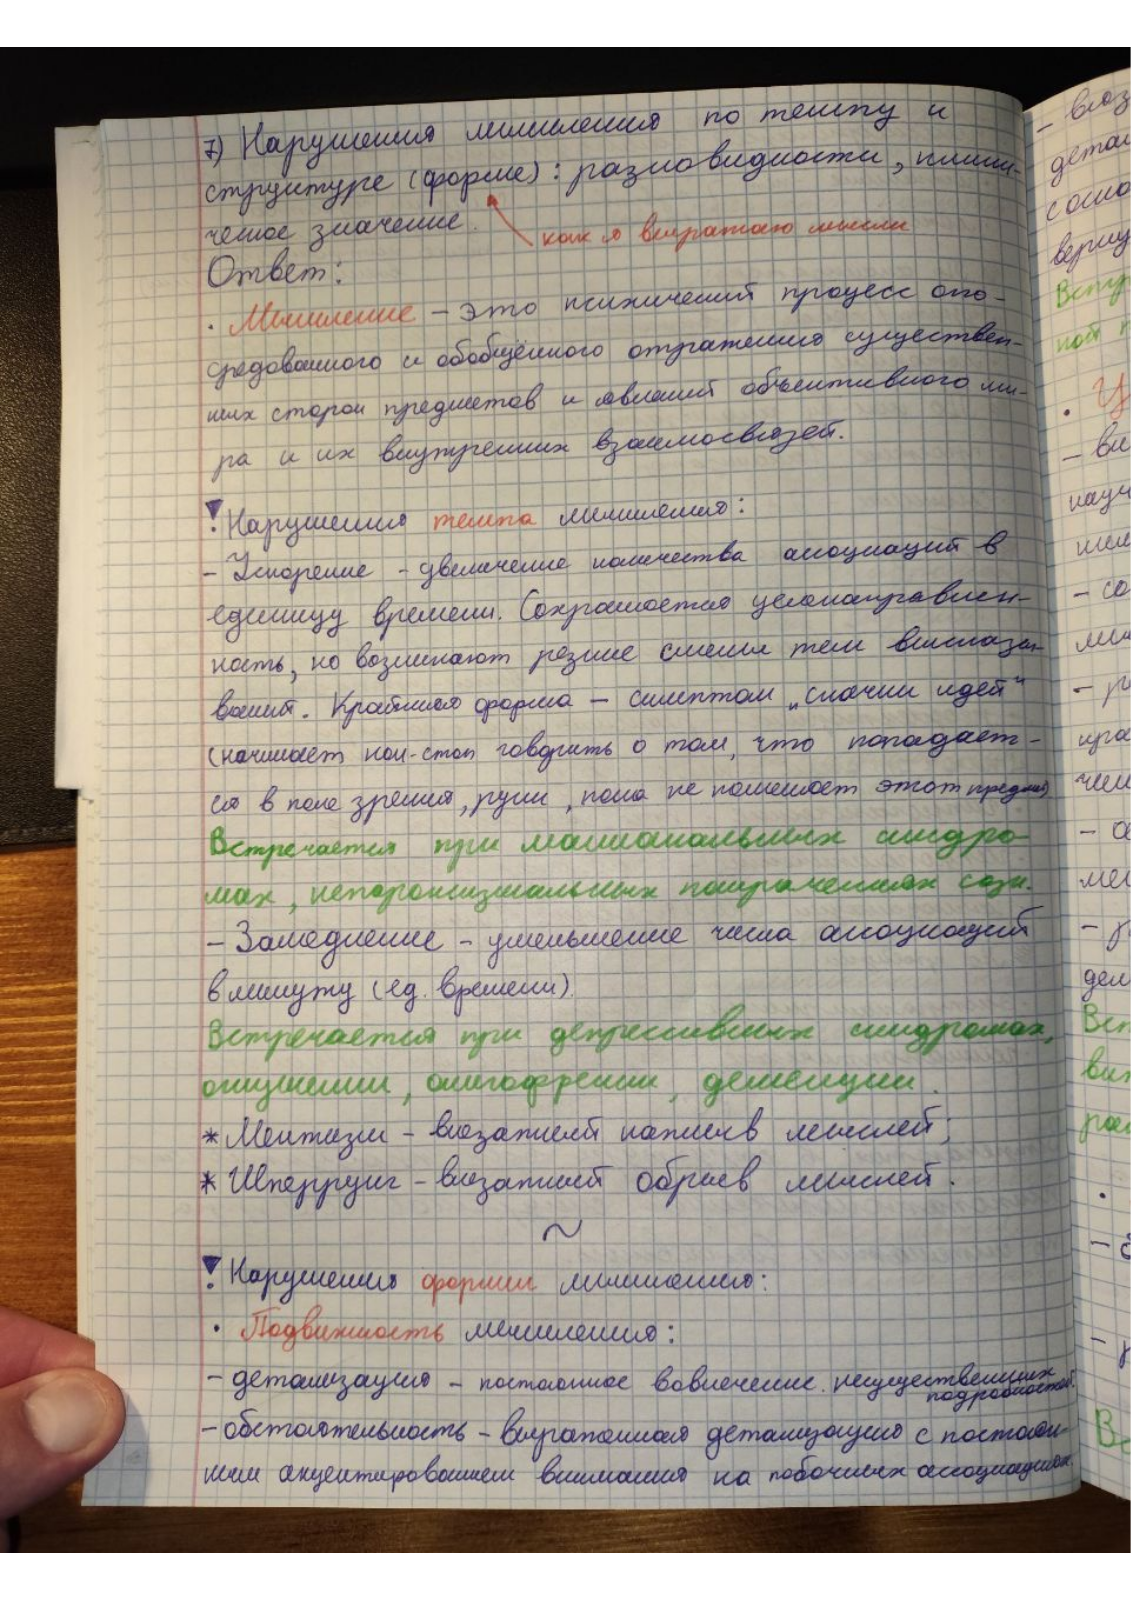 7) Нарушения мышления по темпу и
структуре (форме): разновидности, клини-
ческое значение.
как я выражаю мысли
Ответ:
· Мышление – это психический процесс опо-
средованного и обобщённого отражения существен-
ных сторон предметов и явлений объективного ми-
ра и их внутренних взаимосвязей.
! Нарушения темпа мышления:
– Ускорение – увеличение количества ассоциаций в
единицу времени. Сохраняется целенаправлен-
ность, но возникают резкие смены тем высказы-
ваний. Крайняя форма – симптом „скачки идей“
(начинает нон-стоп говорить о том, что попадает-
ся в поле зрения, руки, пока не поменяет этот предмет)
Встречается при маниакальных синдро-
мах, непароксизмальных помрачениях созн.
– Замедление – уменьшение числа ассоциаций
в минуту (ед. времени).
Встречается при депрессивных синдромах,
оглушении, олигофрении, деменции.
* Ментизм – внезапный наплыв мыслей;
* Шперрунг – внезапный обрыв мыслей.
~
! Нарушения формы мышления:
· Подвижность мышления:
– детализация – постоянное вовлечение несущественных
подробностей.
– обстоятельность – выраженная детализация с постоян-
ным акцентированием внимания на побочных ассоциациях.